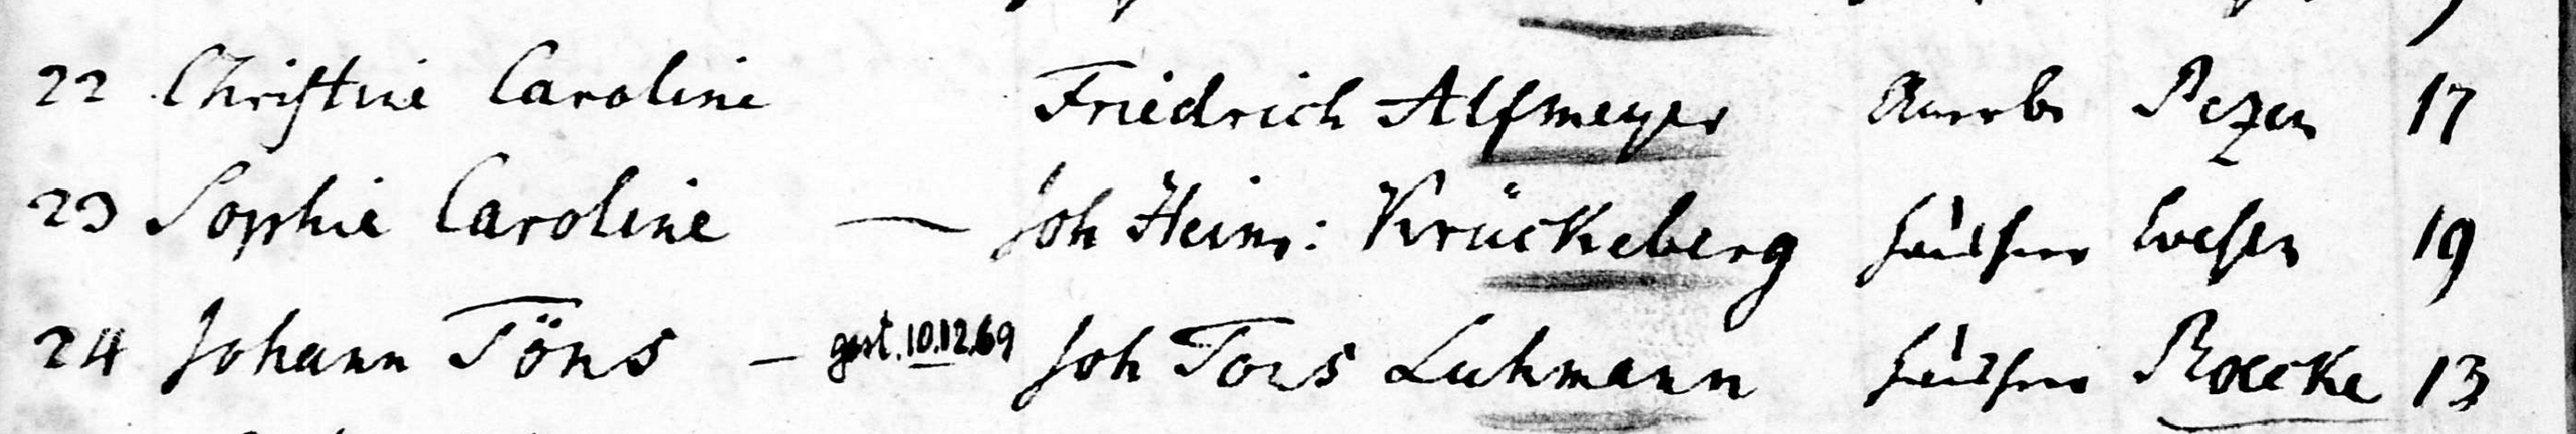 22 Christine Caroline Friedrich Alfmeyer Pezen 17
23 Sophie Caroline — Joh Heinr: Krückeberg Häusler Evesen 19
24 Johann Töns — gest. 10.12.69 Joh Tons Luhmann Häusler Roecke 13